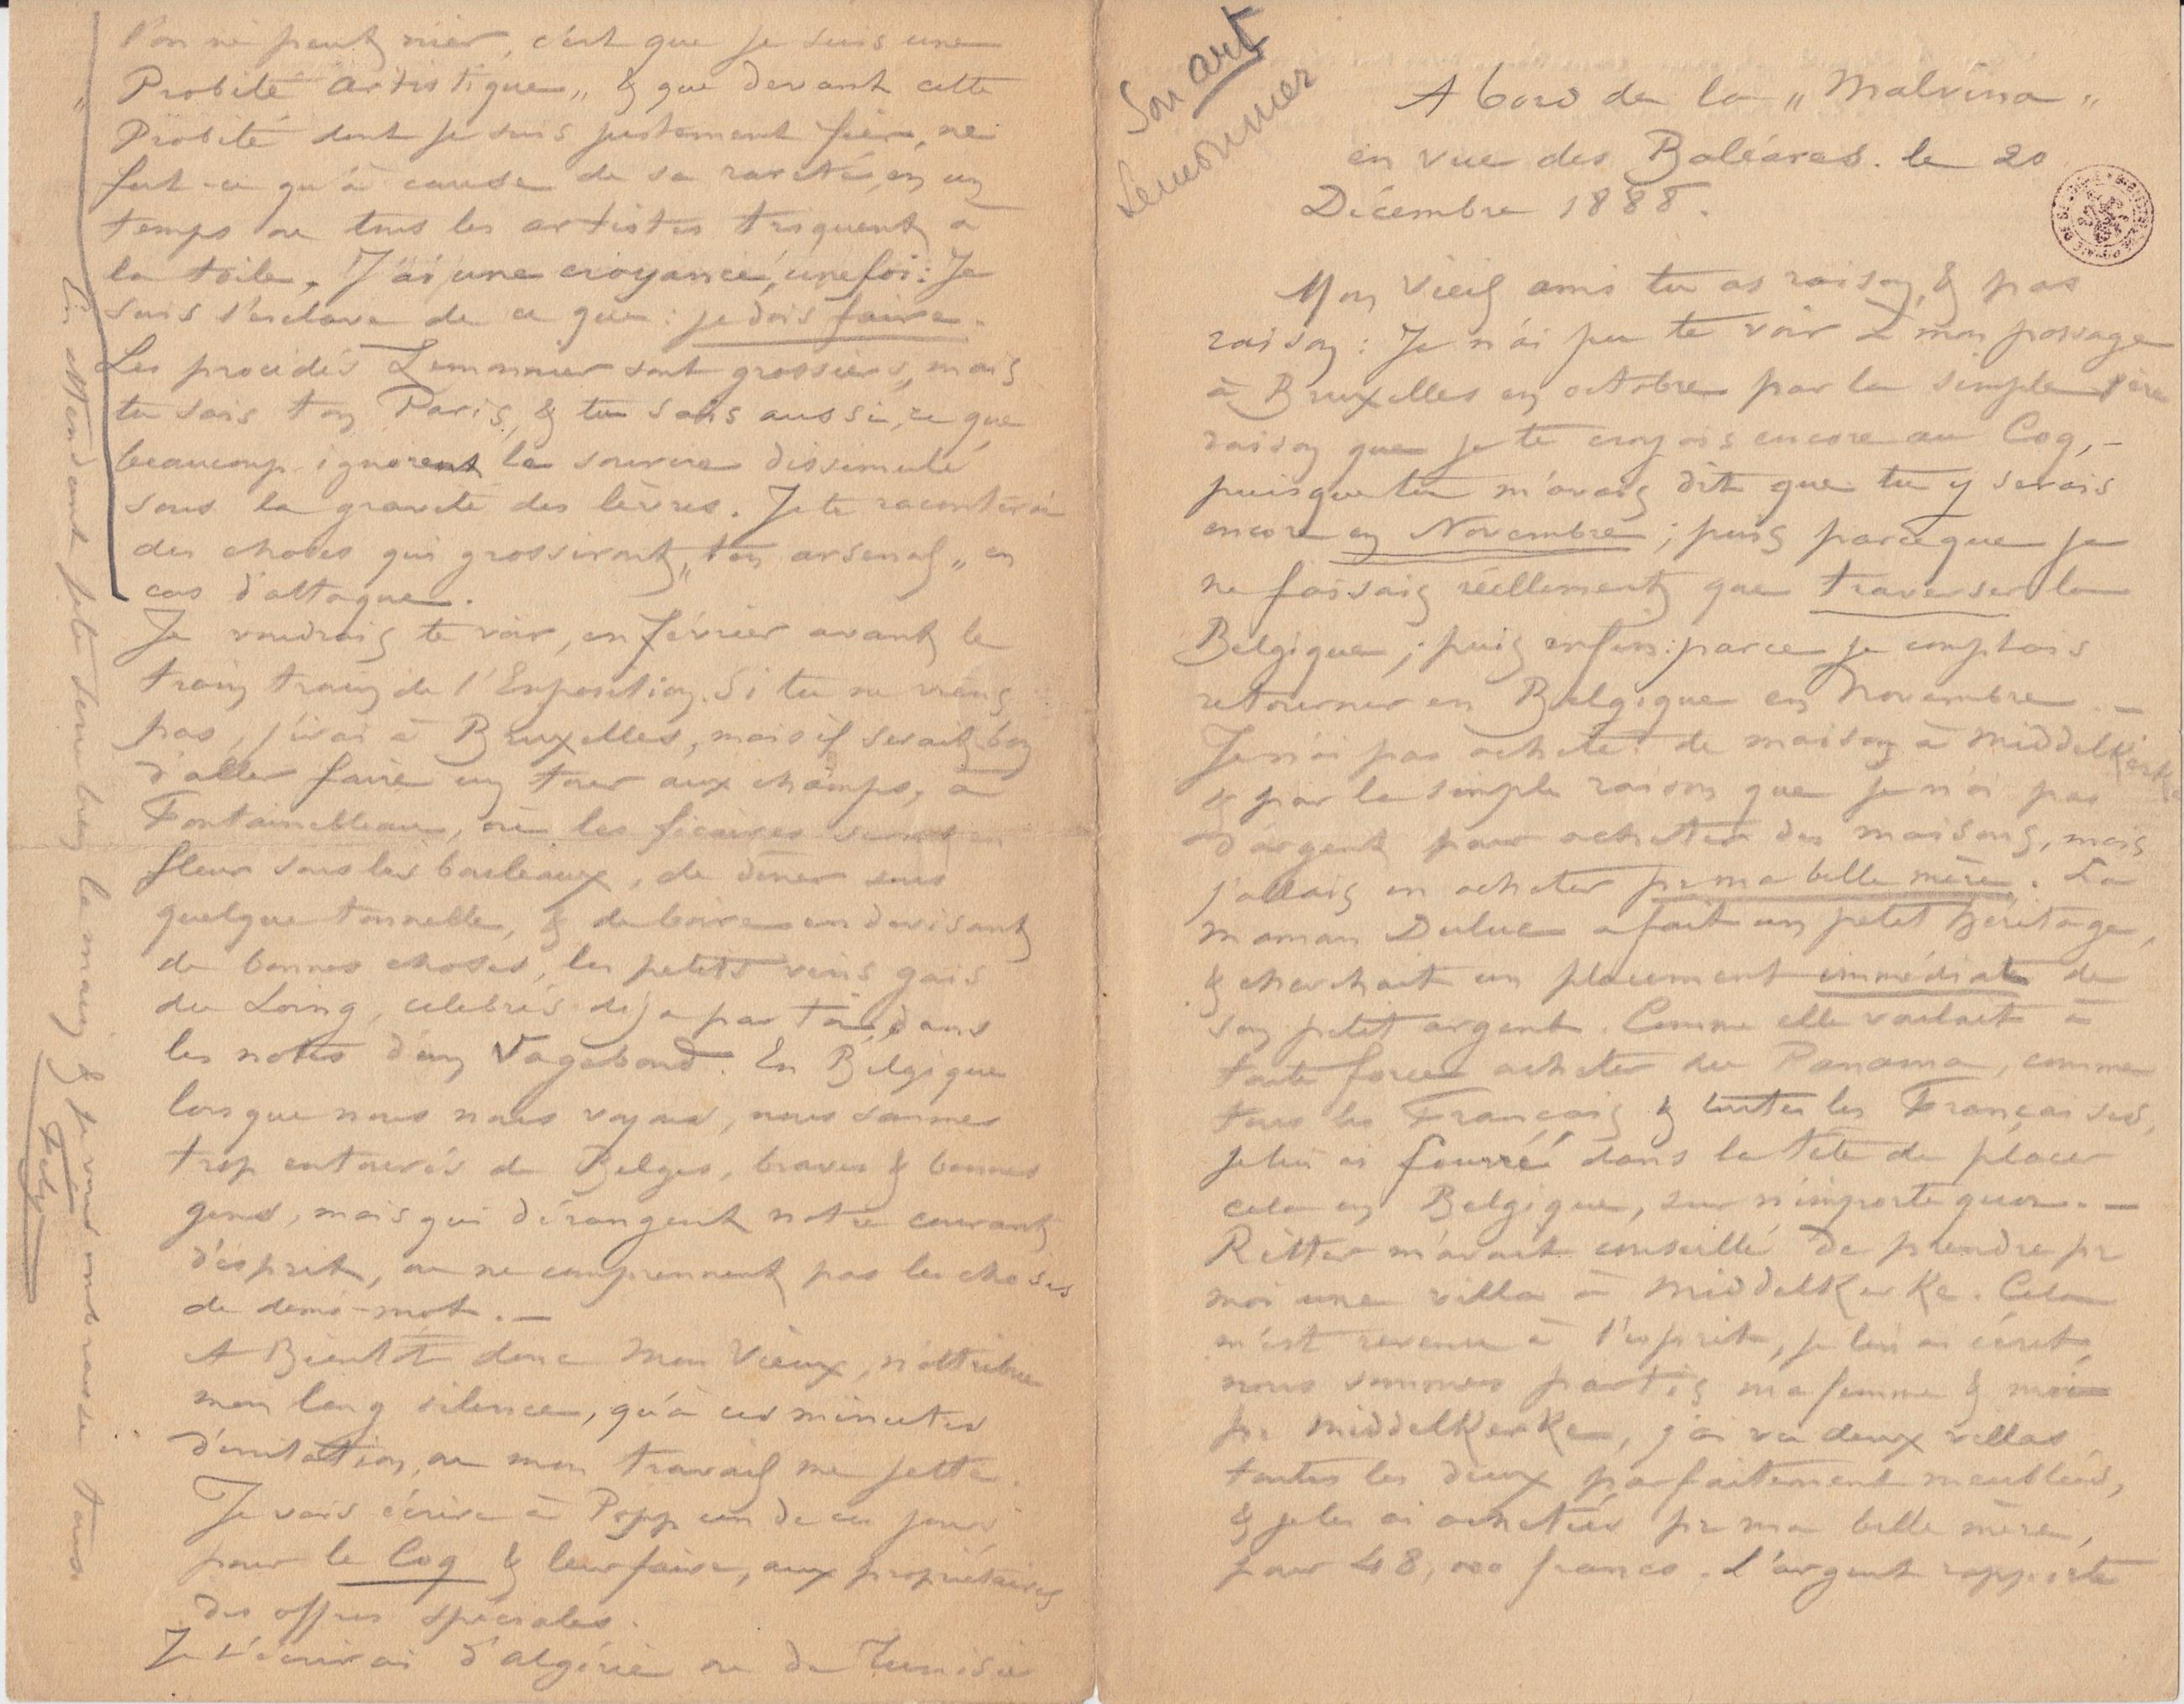 Son art
Lemonnier
A bord de la „ Malvina „
en vue des Baléares. le 20
Décembre 1888.
Mon Vieil ami tu as raison, & pas
raison : Je n'ai pu te voir à mon passage
à Bruxelles en octobre par la simple 1ère
raison que je te croyais encore au Coq, –
puisque tu m'avais dit que tu y serais
encore en Novembre ; puis parceque je
ne faisais réellement que traverser la
Belgique ; puis enfin : parce je comptais
retourner en Belgique en Novembre. –
Je n'ai pas acheté de maison à Middelkerke
& par la simple raison que je n'ai pas
d'argent pour acheter des maisons, mais
j'allais en acheter pr ma belle mère. La
maman Duluc a fait un petit héritage,
& cherchait un placement immédiat de
son petit argent. Comme elle voulait à
toute force acheter du Panama, comme
tous les Français & toutes les Françaises,
je lui ai fourré dans la tête de placer
cela en Belgique, sur n'importe quoi. –
Ritter m'avait conseillé de prendre pr
moi une villa à Middelkerke. Cela
m'est revenu à l'esprit, je lui ai écrit,
nous sommes partis ma femme & moi
pr Middelkerke, j'ai vu deux villas
toutes les deux parfaitement meublées,
& je les ai achetées pr ma belle mère,
pour 48,000 francs. L'argent rapporte
l'on ne peut nier, c'est que je suis une
„ Probité artistique „ & que devant cette
Probité dont je suis justement fier, ne
fut-ce qu'à cause de sa rareté, en un
temps où tous les artistes trquent à
la toile. J'ai une croyance, une foi : Je
suis l'esclave de ce que : je dois faire.
Les procédés Lemonnier sont grossiers, mais
tu sais ton Paris, & tu sais aussi, ce que
beaucoup ignorent le sourire dissimulé
sous la gravité des lèvres. Je te raconterai
des choses qui grossiront „ ton arsenal „ en
cas d'attaque.
Je voudrais te voir, en février avant le
train train de l'Exposition. Si tu ne viens
pas, j'irai à Bruxelles, mais il serait bon
d'aller faire un tour aux champs, à
Fontainebleau, où les ficaires seront en
fleur sous les bouleaux, de dîner sous
quelque tonnelle, & de boire en devisant
de bonnes choses, les petits vins gais
du Loing, célébrés déjà par toi, dans
les notes d'un Vagabond. En Belgique
lorsque nous nous voyons, nous sommes
trop entourés de Belges, braves & bonnes
gens, mais qui dérangent notre courant
d'esprit, ou ne comprennent pas les choses
de demi-mot. –
A Bientôt donc Mon Vieux, n'attribue
mon long silence, qu'à ces minutes
d'irritation, où mon travail me jette.
Je vais écrire à Popp un de ces jours
pour le Coq & leur faire, aux propriétaires
des offres spéciales.
Je t'écrirai d'algérie ou de Tunisie
En attendant je te serre bien la main & je vous embrasse tous.
Fély